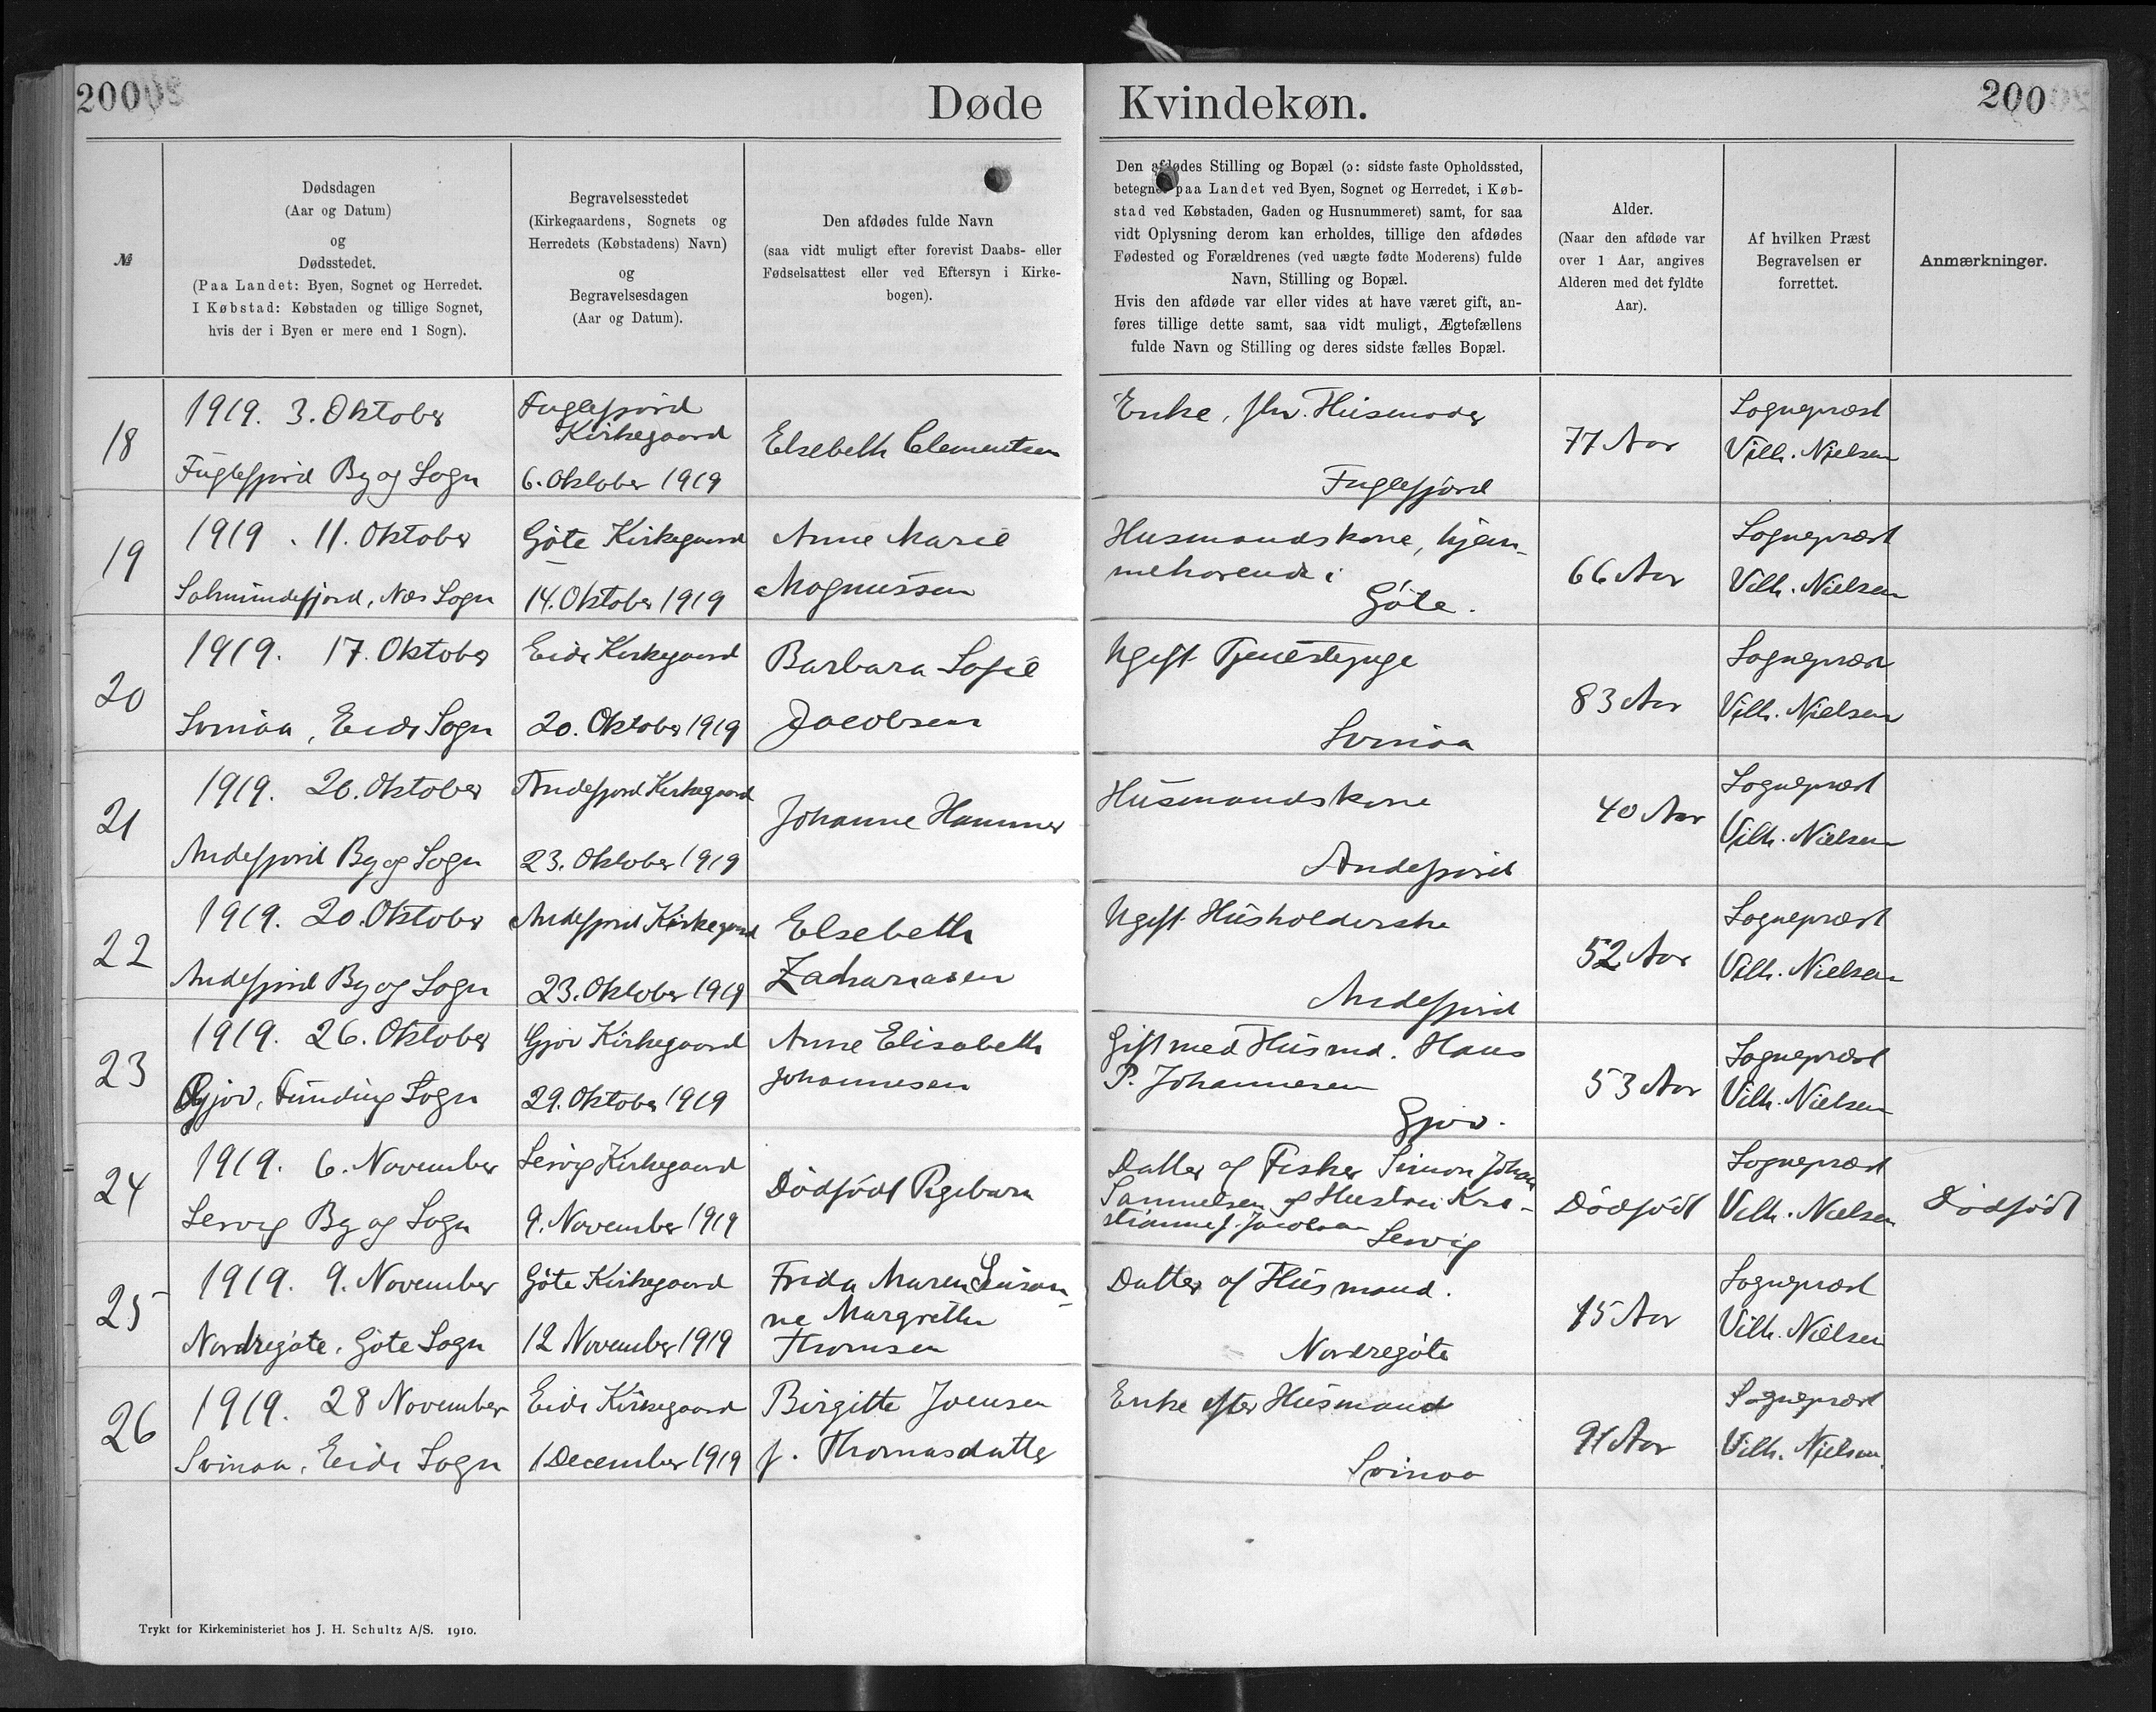 200
Døde
Kvindekøn.
200
№
Dødsdagen
(Aar og Datum)
og
Dødsstedet.
(Paa Landet: Byen, Sognet og Herredet.
I Købstad: Købstaden og tillige Sognet,
hvis der i Byen er mere end 1 Sogn).
Begravelsesstedet
(Kirkegaardens, Sognets og
Herredets (Købstadens) Navn)
og
Begravelsesdagen
(Aar og Datum).
Den afdødes fulde Navn
(saa vidt muligt efter forevist Daabs- eller
Fødselsattest eller ved Eftersyn i Kirke-
bogen).
Den afdødes Stilling og Bopæl (ɔ: sidste faste Opholdssted,
betegnet paa Landet ved Byen, Sognet og Herredet, i Køb-
stad ved Købstaden, Gaden og Husnummeret) samt, for saa
vidt Oplysning derom kan erholdes, tillige den afdødes
Fødested og Forældrenes (ved uægte fødte Moderens) fulde
Navn, Stilling og Bopæl.
Hvis den afdøde var eller vides at have været gift, an-
føres tillige dette samt, saa vidt muligt, Ægtefællens
fulde Navn og Stilling og deres sidste fælles Bopæl.
Alder.
(Naar den afdøde var
over 1 Aar, angives
Alderen med det fyldte
Aar).
Af hvilken Præst
Begravelsen er
forrettet.
Anmærkninger.
18
1919. 3. Oktober
Fuglefjord By og Sogn
Fuglefjord
Kirkegaard
6. Oktober 1919
Elsebeth Clementsen
Enke, fhv. Husmoder
Fuglefjord
77 Aar
Sognepræst
Vilh. Nielsen
19
1919. 11. Oktober
Salmundefjord, Næs Sogn
Göte Kirkegaard
14. Oktober 1919
Anne Marie
Magnussen
Husmandskone, hjem-
mehørende i
Göte.
66 Aar
Sognepræst
Vilh. Nielsen
20
1919. 17. Oktober
Svinaa, Eide Sogn
Eide Kirkegaard
20. Oktober 1919
Barbara Sofie
Jacobsen
Ugift Tjenestepige
Svinaa
83 Aar
Sognepræst
Vilh. Nielsen
21
1919. 20. Oktober
Andefjord By og Sogn
Andefjord Kirkegaard
23. Oktober 1919
Johanne Hammer
Husmandskone
Andefjord
40 Aar
Sognepræst
Vilh. Nielsen
22
1919. 20. Oktober
Andefjord By og Sogn
Andefjord Kirkegaard
23. Oktober 1919
Elsebeth
Zachariasen
Ugift Husholderske
Andefjord
52 Aar
Sognepræst
Vilh. Nielsen
23
1919. 26. Oktober
Gjov, Funding Sogn
Gjov Kirkegaard
29. Oktober 1919
Anne Elisabeth
Johannesen
Gift med Husmd. Hans
P. Johannesen
Gjov.
53 Aar
Sognepræst
Vilh. Nielsen
24
1919. 6. November
Lervig By og Sogn
Lervig Kirkegaard
9. November 1919
Dödfödt Pigebarn
Datter af Fisker Simon Johan
Samuelsen og Hustru Kri-
stianne f. Jacobsen
Lervig
Dödfödt
Sognepræst
Vilh. Nielsen
Dödfödt
25
1919. 9. November
Nordregöte, Göte Sogn
Göte Kirkegaard
12 November 1919
Frida Maren Susan-
ne Margrethe
Thomsen
Datter af Husmand.
Nordregöte
15 Aar
Sognepræst
Vilh. Nielsen
26
1919. 28 November
Svinaa, Eide Sogn
Eide Kirkegaard
1 December 1919
Birgitte Joensen
f. Thomasdatter
Enke efter Husmand
Svinaa
91 Aar
Sognepræst
Vilh. Nielsen.
Trykt for Kirkeministeriet hos J. H. Schultz A/S. 1910.